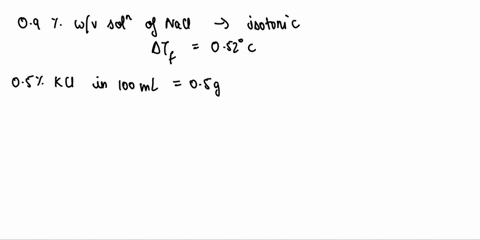 0.9 % w/v solⁿ of NaCl → isotonic
ΔT_f = 0.52° C
0.5% KCl in 100 mL = 0.5g